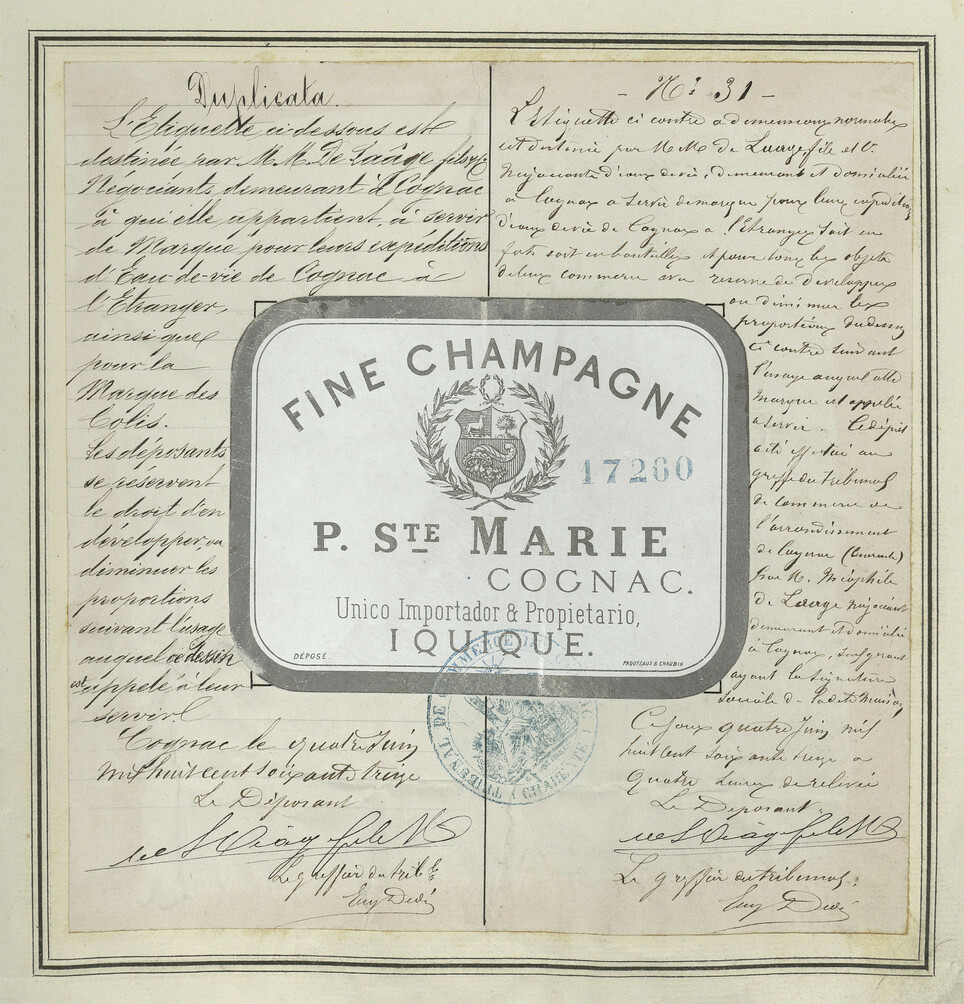 Duplicata.
L'Etiquette ci-dessous est
destinée par M.M. De Laâge fils & Cie
Négociants, demeurant à Cognac
à qui elle appartient, à servir
de Marque pour leurs expéditions
d'Eau-de-vie de Cognac à
l'Etranger,
ainsi que
pour la
Marque des
Colis.
Les déposants
se réservent
le droit d'en
développer, ou
diminuer les
proportions
suivant l'usage
auquel ce dessin
est appelé à leur
servir.
Cognac le quatre Juin
mil huit cent soixante treize
Le Déposant
Le greffier du trib.
- No. 31 -
L'étiquette ci contre a dimensions normales
est destinée par M M de Laage fils et Cie
Négociants d'eaux de vie, demeurant et domiciliés
à Cognac a servir de marque pour leurs expéditions
d'eaux de vie de Cognac a l'étranger soit en
futs soit en bouteilles et pour tous les objets
de leur commerce avec reserve de développer
ou diminuer les
proportions du dessin
ci contre suivant
l'usage auquel cette
marque est appelée
a servir. Ce dépôt
a été effectué au
greffe du tribunal
de commerce de
l'arrondissement
de Cognac (Charente)
par M. Théophile
de Laage négociant
demeurant et domicilié
à Cognac,
ayant la signature
sociale de la dite maison
Ce jour quatre Juin mil
huit cent soixante treize a
quatre heures de relevée
Le Déposant
Le greffier du tribunal
FINE CHAMPAGNE
17260
P. STE MARIE
COGNAC.
Unico Importador & Propietario,
IQUIQUE.
DÉPOSÉ.
PROUTEAUX & CHAUBIN
TRIBUNAL DE COMMERCE
(CHARENTE)